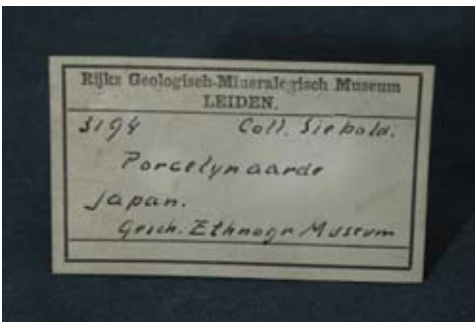 Rijks Geologisch-Mineralogisch Museum
LEIDEN.
3194 Coll. Siebold.
Porcelynaarde
Japan.
Gesch. Ethnogr Museum